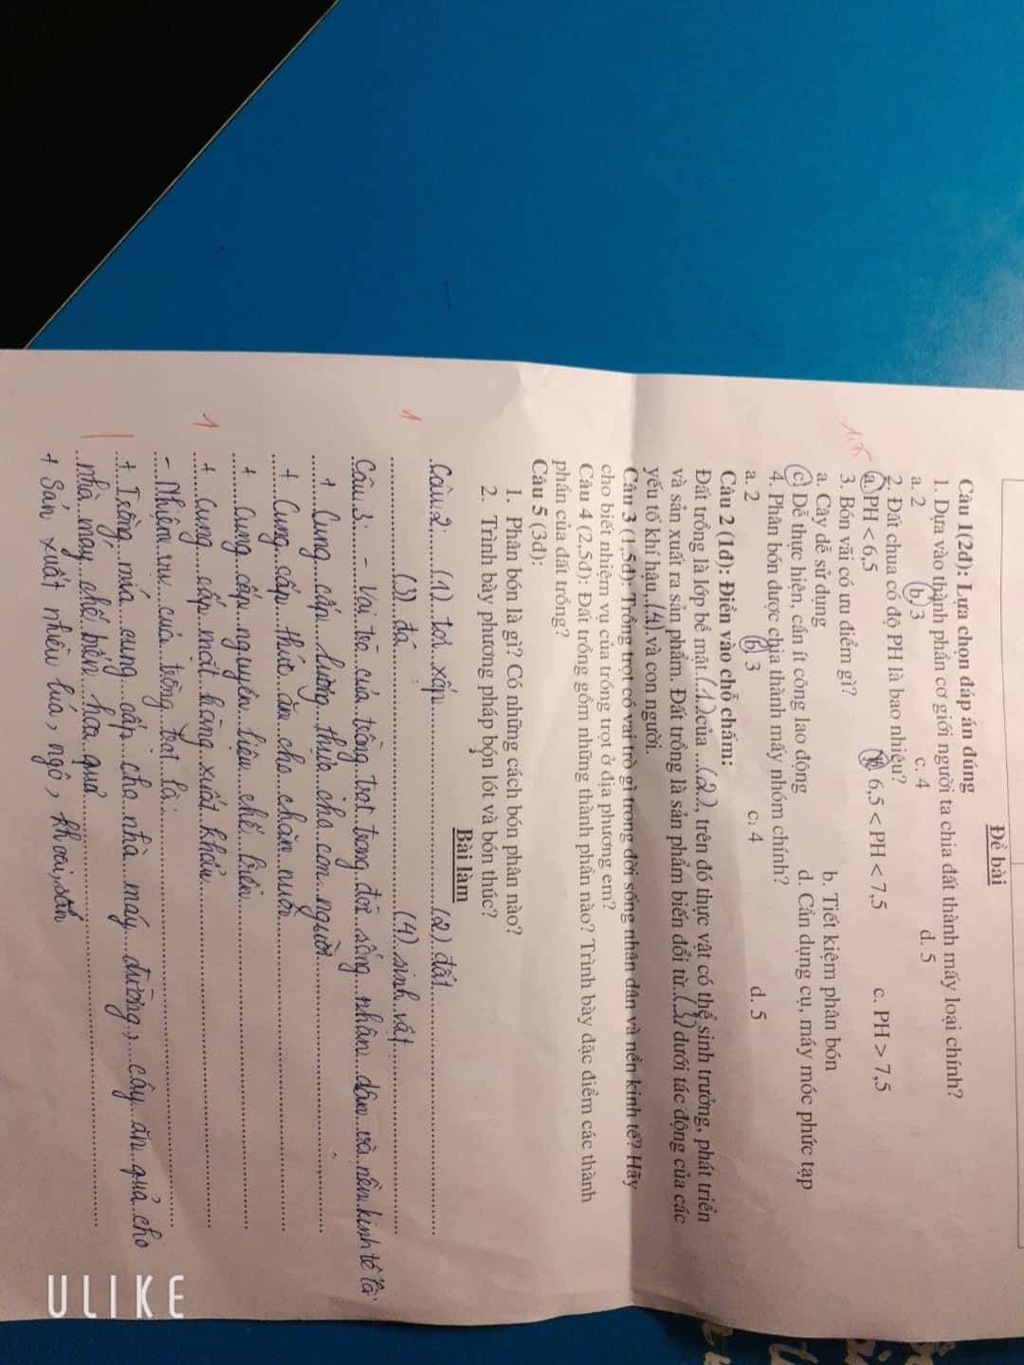 Đề bài
Câu 1(2đ): Lựa chọn đáp án đúng
1. Dựa vào thành phần cơ giới người ta chia đất thành mấy loại chính?
a. 2 b. 3 c. 4 d. 5
2. Đất chua có độ PH là bao nhiêu?
a. PH < 6,5 6,5 < PH < 7,5 c. PH > 7,5
3. Bón vãi có ưu điểm gì?
a. Cây dễ sử dụng b. Tiết kiệm phân bón
c. Dễ thực hiện, cần ít công lao động d. Cần dụng cụ, máy móc phức tạp
4. Phân bón được chia thành mấy nhóm chính?
a. 2 b. 3 c. 4 d. 5
Câu 2 (1đ): Điền vào chỗ chấm:
Đất trồng là lớp bề mặt.(1).của ...(2).., trên đó thực vật có thể sinh trưởng, phát triển
và sản xuất ra sản phẩm. Đất trồng là sản phẩm biến đổi từ.(3) dưới tác động của các
yếu tố khí hậu,.(4).và con người.
Câu 3 (1,5đ): Trồng trọt có vai trò gì trong đời sống nhân dân và nền kinh tế? Hãy
cho biết nhiệm vụ của trồng trọt ở địa phương em?
Câu 4 (2,5đ): Đất trồng gồm những thành phần nào? Trình bày đặc điểm các thành
phần của đất trồng?
Câu 5 (3đ):
1. Phân bón là gì? Có những cách bón phân nào?
2. Trình bày phương pháp bón lót và bón thúc?
Bài làm
Câu 2: (1) tơi xốp (2) đất
1 (3) đá (4) sinh vật
Câu 3: - Vai trò của trồng trọt trong đời sống nhân dân và nền kinh tế là:
+ Cung cấp lương thực cho con người
+ Cung cấp thức ăn cho chăn nuôi
+ Cung cấp nguyên liệu chế biến
1 + Cung cấp mặt hàng xuất khẩu
- Nhiệm vụ của trồng trọt là:
+ Trồng mía cung cấp cho nhà máy đường, cây ăn quả cho
nhà máy chế biến hoa quả
+ Sản xuất nhiều lúa, ngô, khoai, sắn
ULIKE